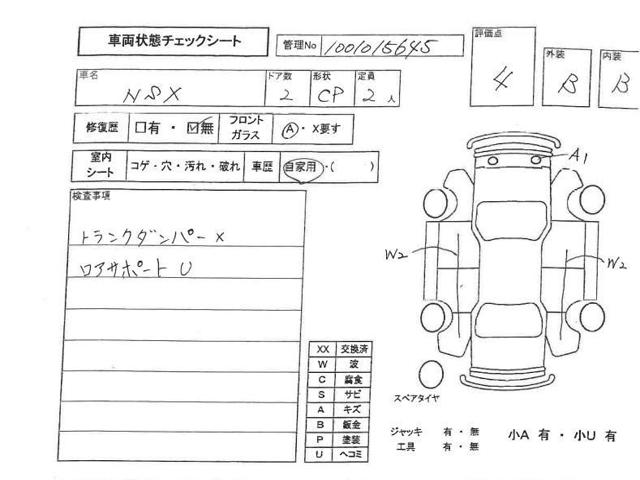 車両状態チェックシート
管理No 1001015645
評価点 4
外装 B
内装 B
車名 NSX
ドア数 2
形状 CP
定員 2人
修復歴 □有・☑無
フロントガラス A・X要す
室内シート コゲ・穴・汚れ・破れ
車歴 自家用・( )
検査事項
トランクダンパー X
ロアサポート U
A1
W2
W2
スペアタイヤ
XX 交換済
W 波
C 腐食
S サビ
A キズ
B 鈑金
P 塗装
U ヘコミ
ジャッキ 有・無
工具 有・無
小A 有・小U 有